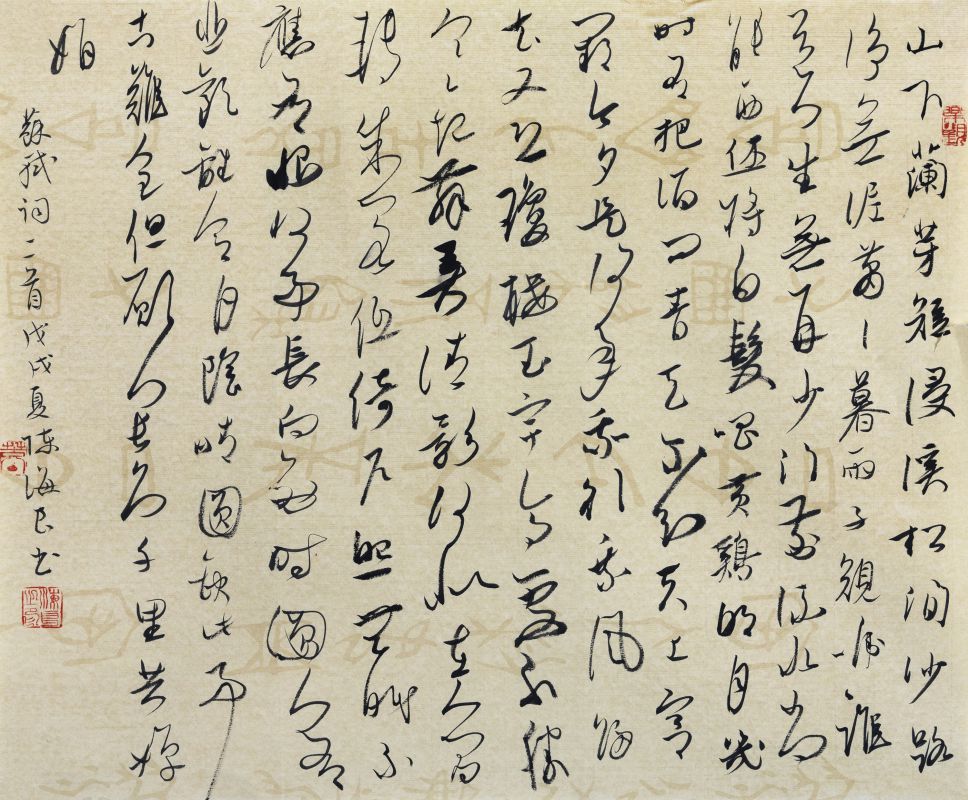 山下蘭芽短浸溪松間沙路
淨無泥蕭丶暮雨子規啼誰
道人生無再少門前流水尚
能西休將白髮唱黃鷄明月幾
時有把酒問青天不知天上宮
闕今夕是何年我欲乘風歸
去又恐瓊樓玉宇高處不勝
寒起舞弄清影何似在人間
轉朱閣低綺戶照無眠不
應有恨何事長向別時圓人有
悲歡離合月陰晴圓缺此事
古難全但願人長久千里共嬋
娟
蘇軾詞二首戊戌夏陳海良書